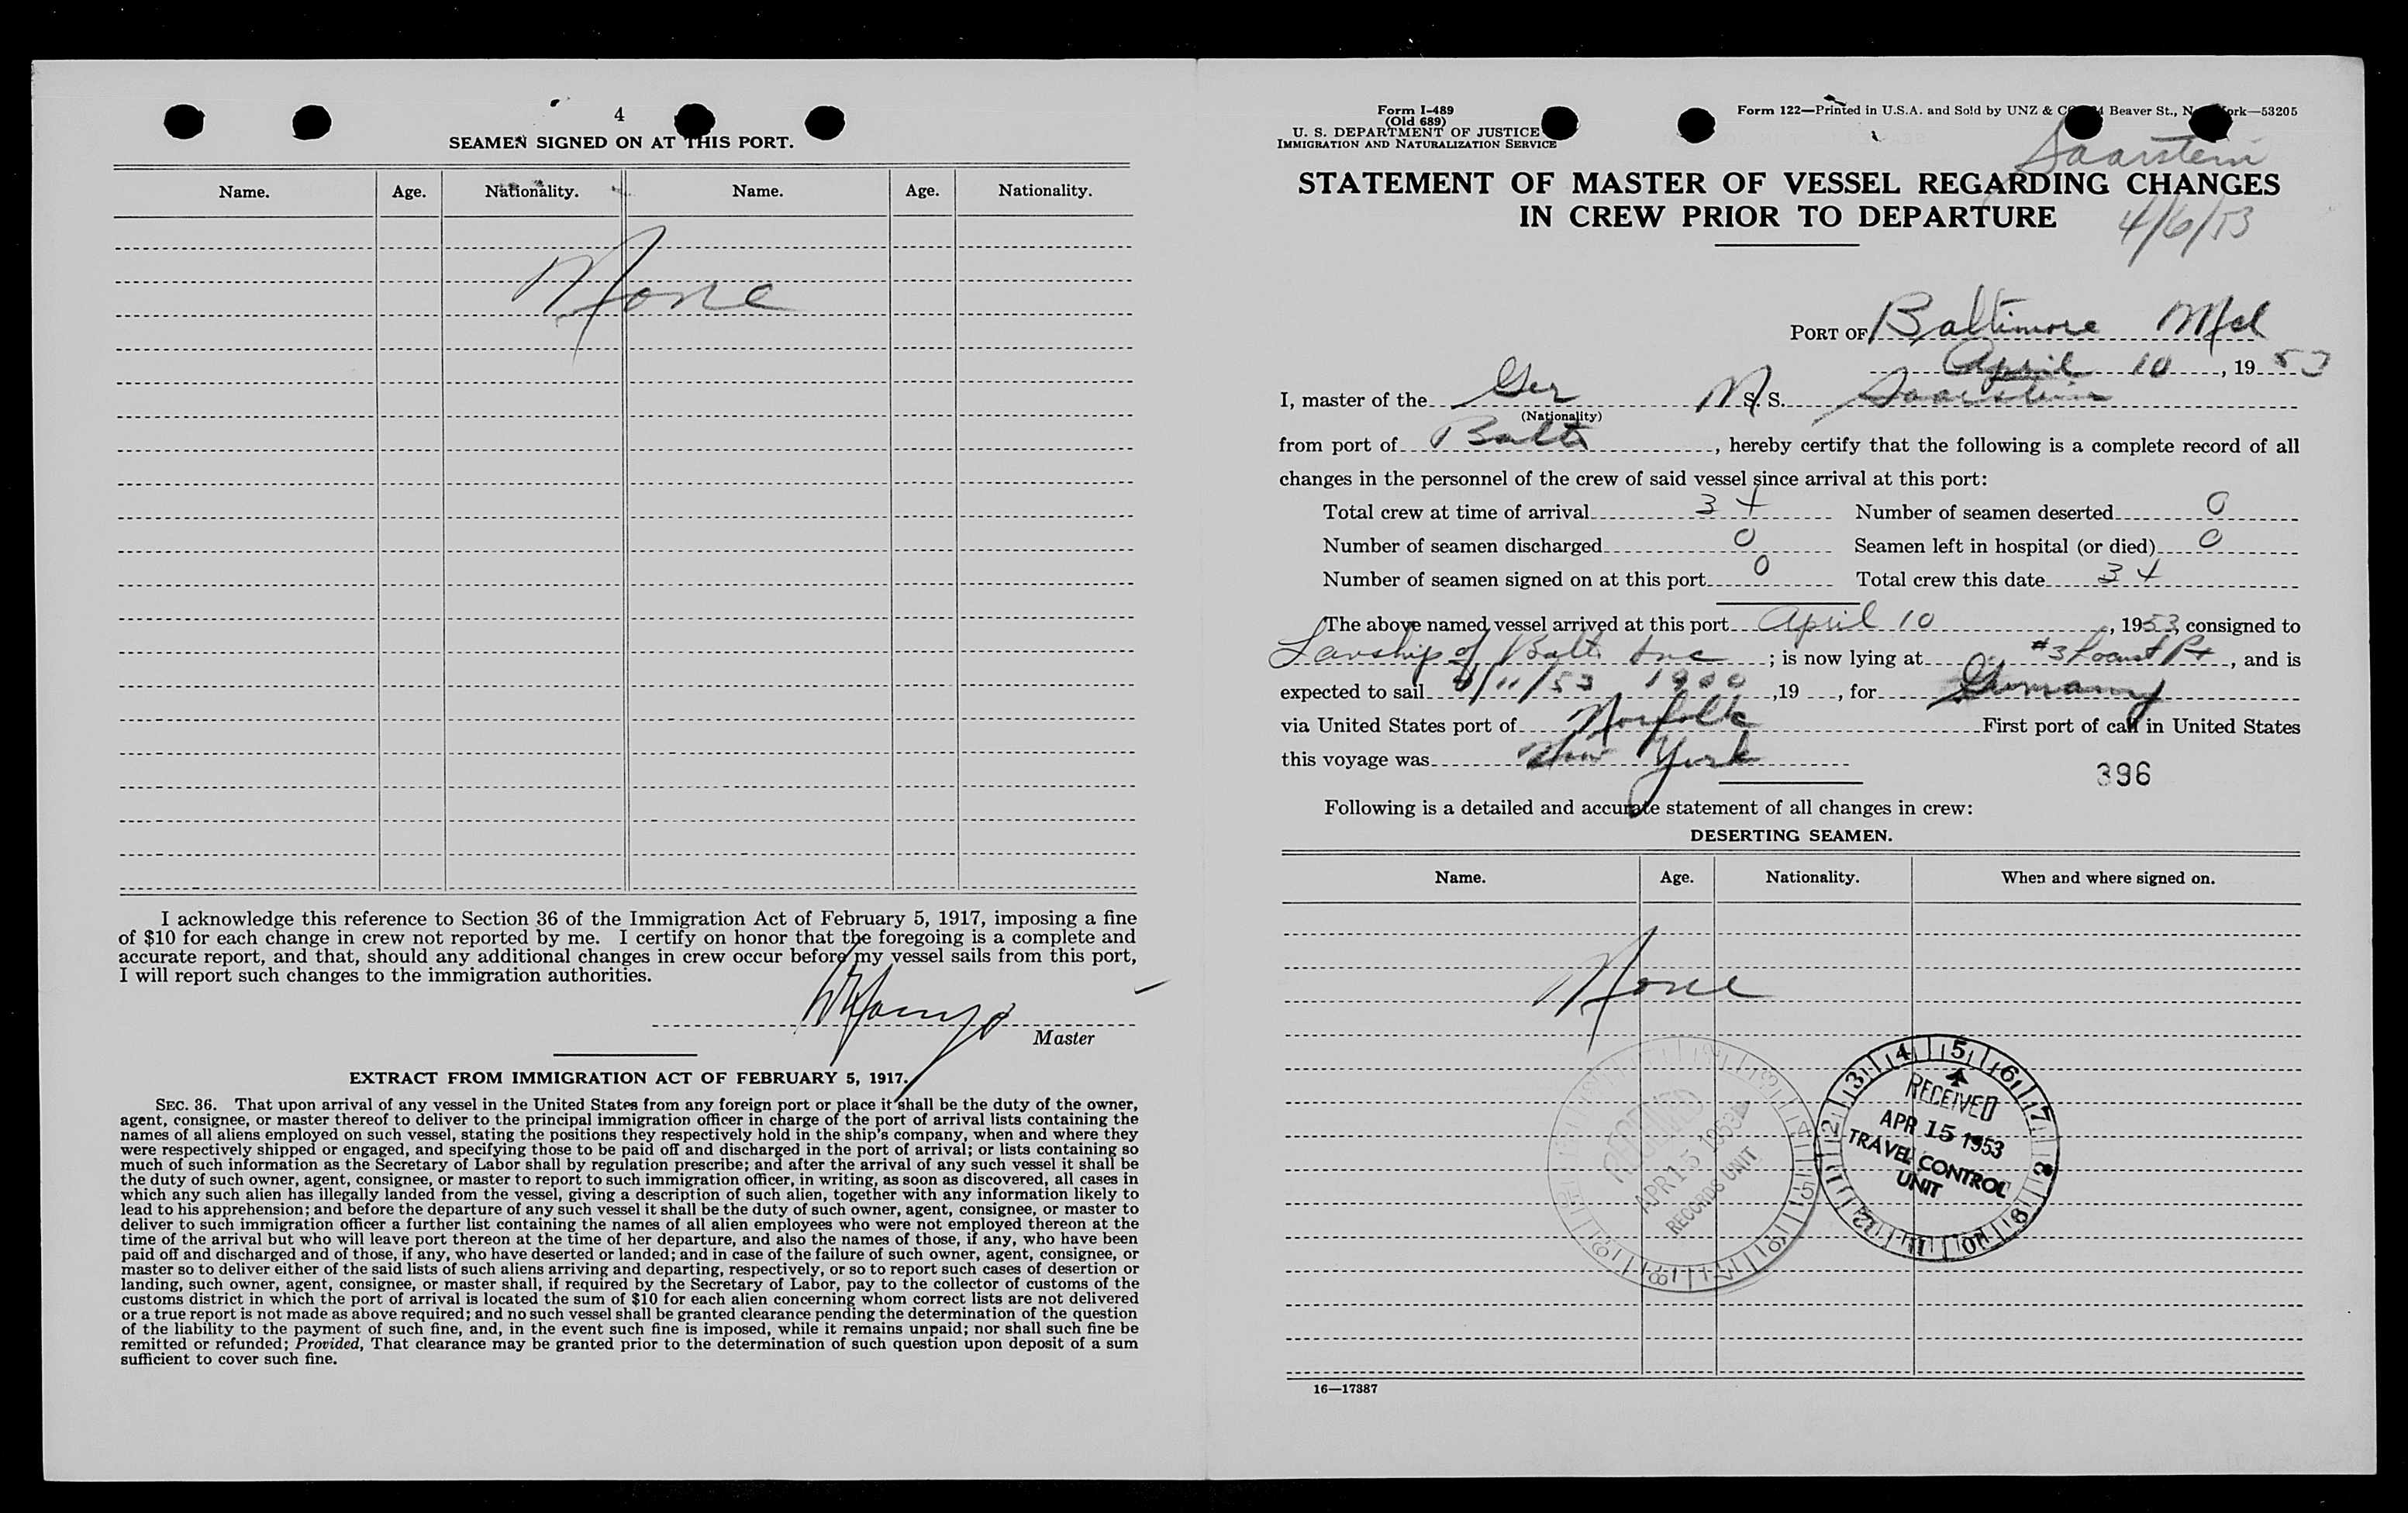 4
SEAMEN SIGNED ON AT THIS PORT.
Name. Age. Nationality. Name. Age. Nationality.
None
I acknowledge this reference to Section 36 of the Immigration Act of February 5, 1917, imposing a fine
of $10 for each change in crew not reported by me. I certify on honor that the foregoing is a complete and
accurate report, and that, should any additional changes in crew occur before my vessel sails from this port,
I will report such changes to the immigration authorities.
Master
EXTRACT FROM IMMIGRATION ACT OF FEBRUARY 5, 1917.
SEC. 36. That upon arrival of any vessel in the United States from any foreign port or place it shall be the duty of the owner,
agent, consignee, or master thereof to deliver to the principal immigration officer in charge of the port of arrival lists containing the
names of all aliens employed on such vessel, stating the positions they respectively hold in the ship's company, when and where they
were respectively shipped or engaged, and specifying those to be paid off and discharged in the port of arrival; or lists containing so
much of such information as the Secretary of Labor shall by regulation prescribe; and after the arrival of any such vessel it shall be
the duty of such owner, agent, consignee, or master to report to such immigration officer, in writing, as soon as discovered, all cases in
which any such alien has illegally landed from the vessel, giving a description of such alien, together with any information likely to
lead to his apprehension; and before the departure of any such vessel it shall be the duty of such owner, agent, consignee, or master to
deliver to such immigration officer a further list containing the names of all alien employees who were not employed thereon at the
time of the arrival but who will leave port thereon at the time of her departure, and also the names of those, if any, who have been
paid off and discharged and of those, if any, who have deserted or landed; and in case of the failure of such owner, agent, consignee, or
master so to deliver either of the said lists of such aliens arriving and departing, respectively, or so to report such cases of desertion or
landing, such owner, agent, consignee, or master shall, if required by the Secretary of Labor, pay to the collector of customs of the
customs district in which the port of arrival is located the sum of $10 for each alien concerning whom correct lists are not delivered
or a true report is not made as above required; and no such vessel shall be granted clearance pending the determination of the question
of the liability to the payment of such fine, and, in the event such fine is imposed, while it remains unpaid; nor shall such fine be
remitted or refunded; Provided, That clearance may be granted prior to the determination of such question upon deposit of a sum
sufficient to cover such fine.
Form I-489
(Old 689)
U. S. DEPARTMENT OF JUSTICE
IMMIGRATION AND NATURALIZATION SERVICE
Form 122—Printed in U.S.A. and Sold by UNZ & Beaver St., 53205
Saarstein
STATEMENT OF MASTER OF VESSEL REGARDING CHANGES
IN CREW PRIOR TO DEPARTURE
4/6/53
PORT OF Baltimore Md
April 10, 1953
I, master of the Ger M S. S. Saarstein
(Nationality)
from port of Balto, hereby certify that the following is a complete record of all
changes in the personnel of the crew of said vessel since arrival at this port:
Total crew at time of arrival 34 Number of seamen deserted 0
Number of seamen discharged 0 Seamen left in hospital (or died) 0
Number of seamen signed on at this port 0 Total crew this date 34
The above named vessel arrived at this port April 10, 1953, consigned to
of Balto Inc; is now lying at #3 Locust Pt, and is
expected to sail 4/11/53 1900, 19, for Germany
via United States port of Norfolk First port of call in United States
this voyage was New York
396
Following is a detailed and accurate statement of all changes in crew:
DESERTING SEAMEN.
Name. Age. Nationality. When and where signed on.
None
RECEIVED
APR 15 1953
RECORDS UNIT
RECEIVED
APR 15 1953
TRAVEL CONTROL
UNIT
16—17387